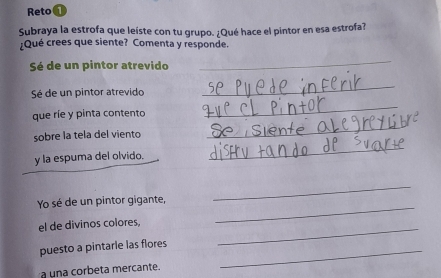 Reto 1
Subraya la estrofa que leíste con tu grupo. ¿Qué hace el pintor en esa estrofa?
¿Qué crees que siente? Comenta y responde.
Sé de un pintor atrevido
Sé de un pintor atrevido
se puede inferir
que ríe y pinta contento
que el Pintor
sobre la tela del viento
se siente alegre y libre
y la espuma del olvido.
disfrutando de su arte
Yo sé de un pintor gigante,
el de divinos colores,
puesto a pintarle las flores
a una corbeta mercante.